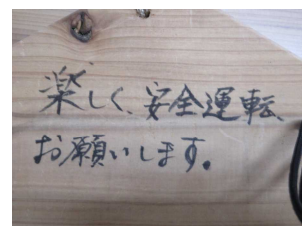 楽しく、安全運転、
お願いします。